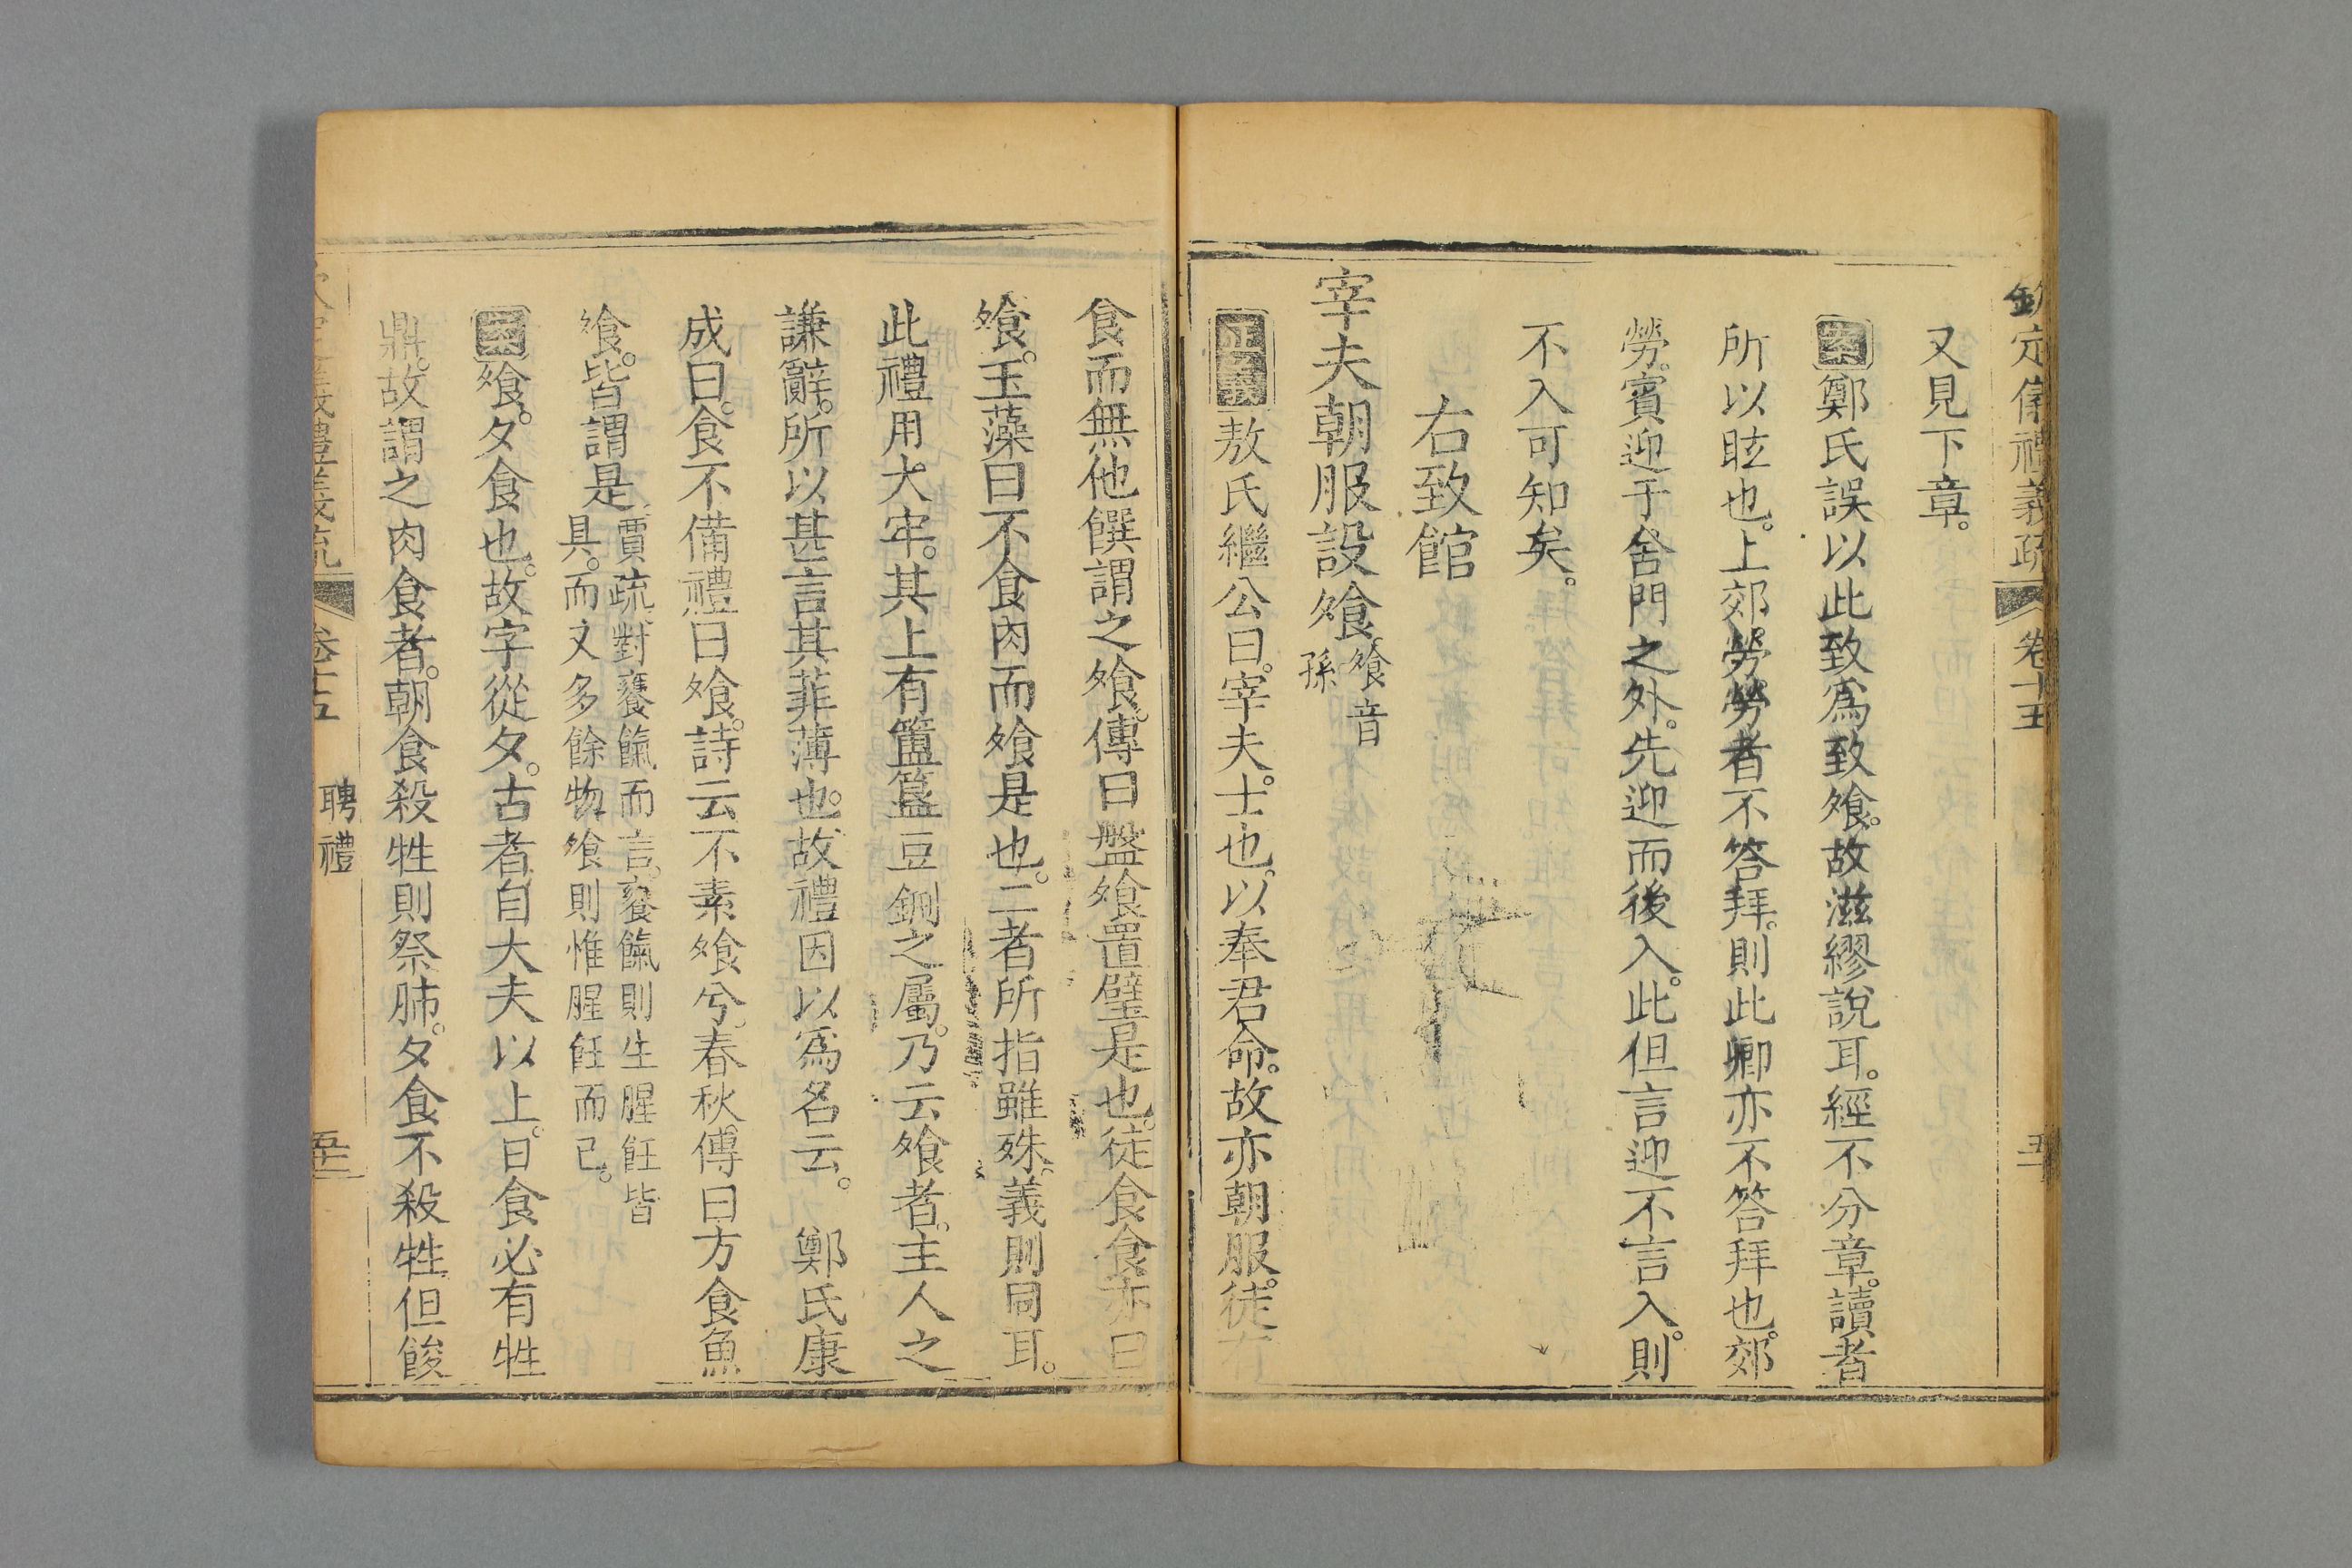 欽定儀禮義疏 卷十五
又見下章。
案鄭氏誤以此致爲致飧。故滋繆說耳。經不分章。讀者
所以眩也。上郊勞。勞者不答拜。則此卿亦不答拜也。郊
勞。賓迎于舍門之外。先迎而後入。此但言迎不言入。則
不入可知矣。
右致館
宰夫朝服設飧飧音
孫
正義敖氏繼公曰。宰夫。士也。以奉君命。故亦朝服。徒有
食而無他饌謂之飧。傳曰盤飧置璧是也。徒食食亦曰
飧。玉藻曰不食肉而飧是也。二者所指雖殊。義則同耳。
此禮用大牢。其上有簠簋豆鉶之屬。乃云飧者。主人之
謙辭。所以甚言其菲薄也。故禮因以爲名云。 鄭氏康
成曰。食不備禮曰飧。詩云不素飧兮。春秋傳曰方食魚
飧。皆謂是
賈疏。對饔餼而言。饔餼則生腥飪皆
具。而又多餘物。飧則惟腥飪而已。
案飧。夕食也。故字從夕。古者自大夫以上。日食必有牲
鼎。故謂之肉食者。朝食殺牲則祭肺。夕食不殺牲。但餕
卷十五 聘禮